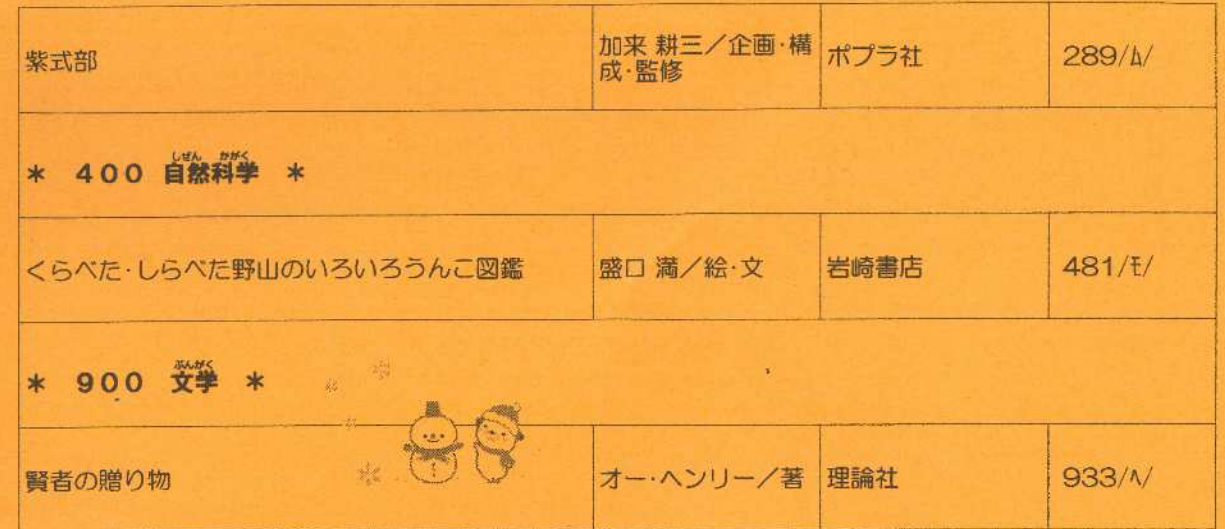 紫式部
加来 耕三／企画・構
成・監修
ポプラ社
289/ﾑ/
＊ 400 自然科学 ＊
しぜん かがく
くらべた・しらべた野山のいろいろうんこ図鑑
盛口 満／絵・文
岩崎書店
481/ﾓ/
＊ 900 文学 ＊
ぶんがく
賢者の贈り物
オー・ヘンリー／著
理論社
933/ﾍ/